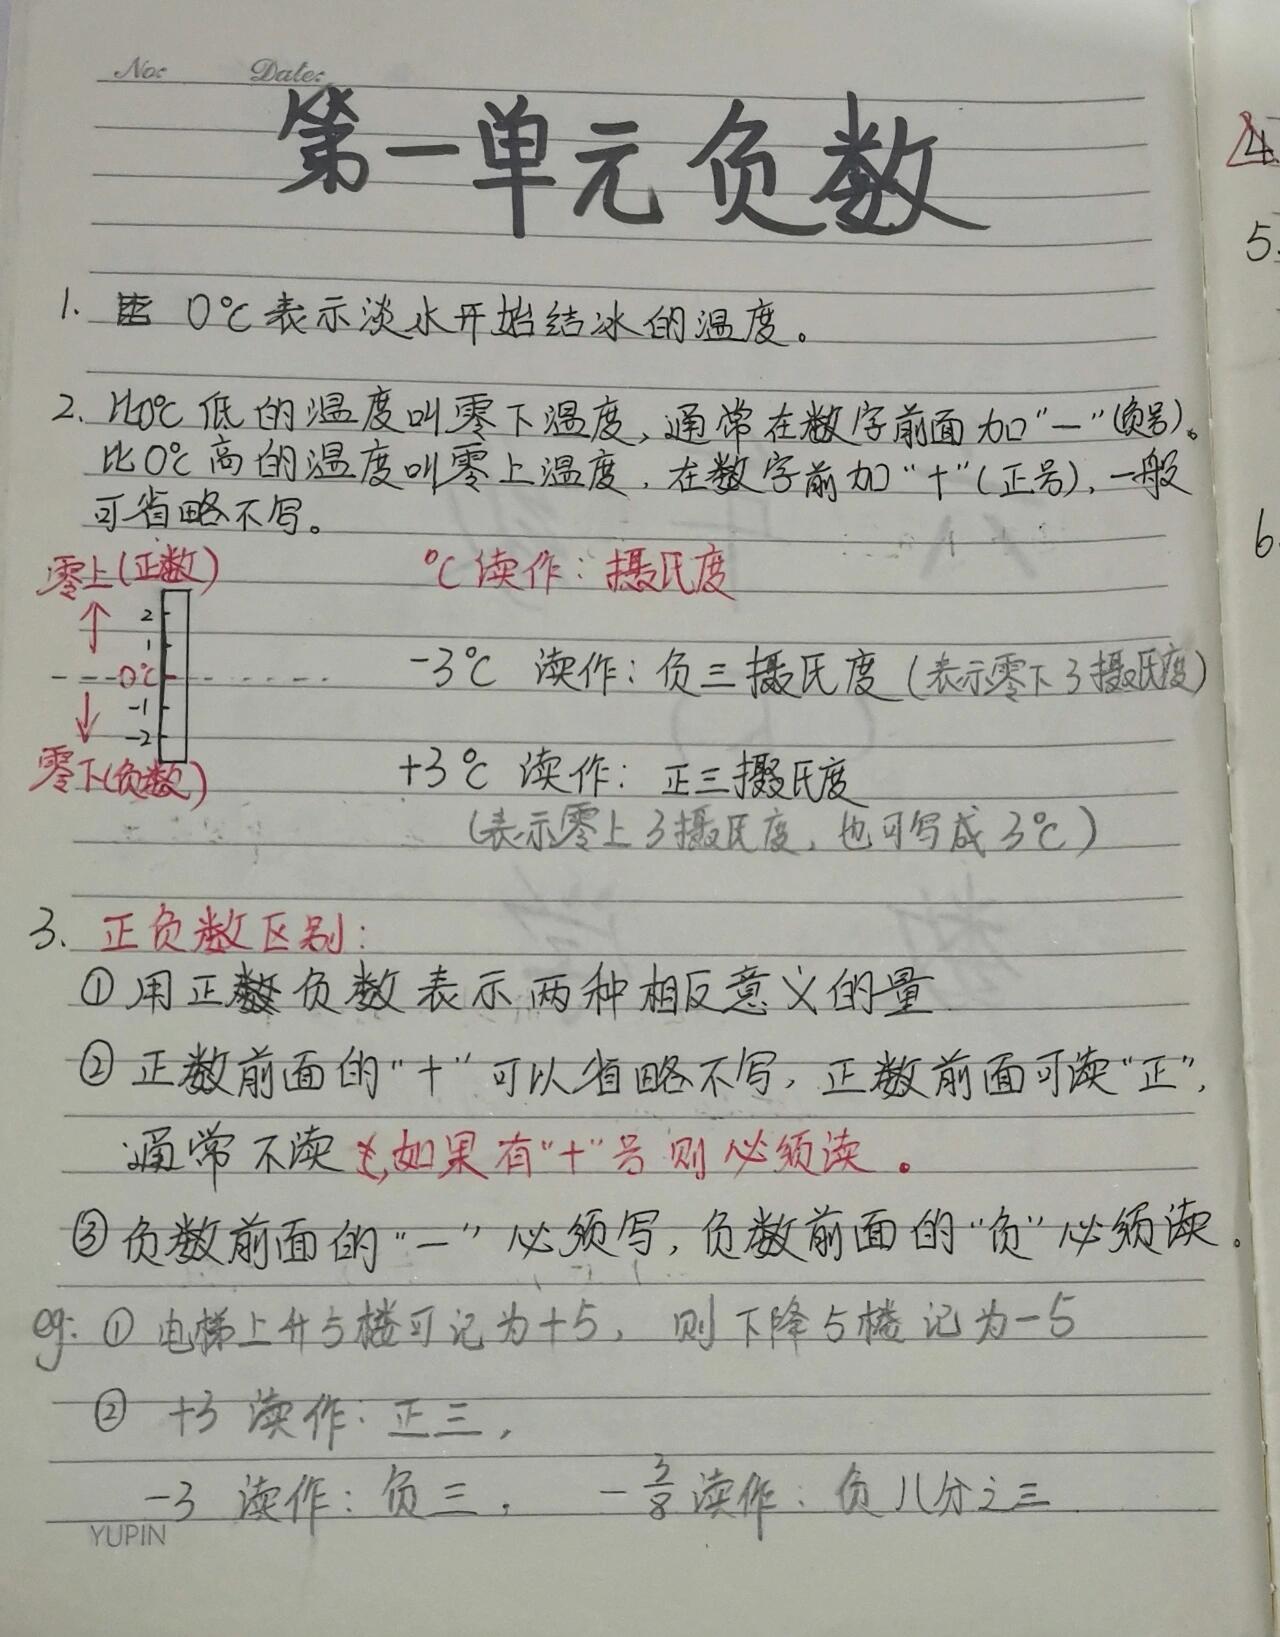 No: Date:
第一单元负数
1. 0℃表示淡水开始结冰的温度。
2. 比0℃低的温度叫零下温度,通常在数字前面加“—”(负号)。
比0℃高的温度叫零上温度,在数字前加“+”(正号),一般
可省略不写。
零上(正数)
℃读作:摄氏度
2
1
0℃
-1
-2
零下(负数)
-3℃ 读作:负三摄氏度(表示零下3摄氏度)
+3℃ 读作:正三摄氏度
(表示零上3摄氏度,也可写成3℃)
3. 正负数区别:
①用正数负数表示两种相反意义的量
②正数前面的“+”可以省略不写,正数前面可读“正”,
通常不读,如果有“+”号则必须读。
③负数前面的“—”必须写,负数前面的“负”必须读。
eg:①电梯上升5楼可记为+5, 则下降5楼记为-5
② +3读作:正三,
-3 读作:负三, -3/8读作:负八分之三
YUPIN
4.
5.
6.